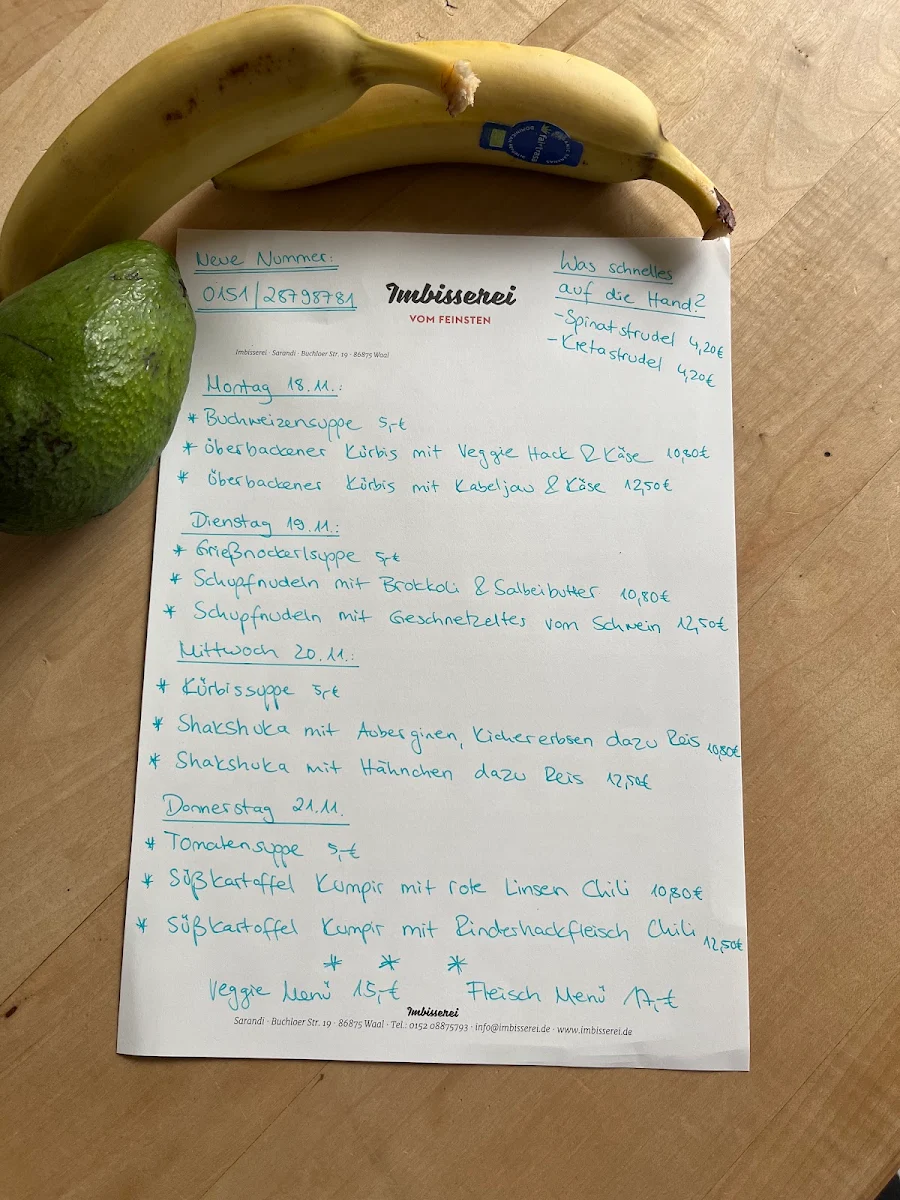 Neue Nummer:
0151/28798781
Imbisserei
VOM FEINSTEN
Imbisserei · Sarandi · Buchloer Str. 19 · 86875 Waal
Was schnelles
auf die Hand?
-Spinatstrudel 4,20€
-Kretastrudel 4,20€
Montag 18.11.:
* Buchweizensuppe 5,-€
* Überbackener Kürbis mit Veggie Hack & Käse 10,80€
* Überbackener Kürbis mit Kabeljau & Käse 12,50€
Dienstag 19.11.:
* Grießnockerlsuppe 5,-€
* Schupfnudeln mit Brokkoli & Salbeibutter 10,80€
* Schupfnudeln mit Geschnetzeltes vom Schwein 12,50€
Mittwoch 20.11.:
* Kürbissuppe 5,-€
* Shakshuka mit Auberginen, Kichererbsen dazu Reis 10,80€
* Shakshuka mit Hähnchen dazu Reis 12,50€
Donnerstag 21.11.
* Tomatensuppe 5,-€
* Süßkartoffel Kumpir mit rote Linsen Chili 10,80€
* Süßkartoffel Kumpir mit Rinderhackfleisch Chili 12,50€
* * *
Veggie Menü 15,-€ Fleisch Menü 17,-€
Imbisserei
Sarandi · Buchloer Str. 19 · 86875 Waal · Tel.: 0152 08875793 · info@imbisserei.de · www.imbisserei.de